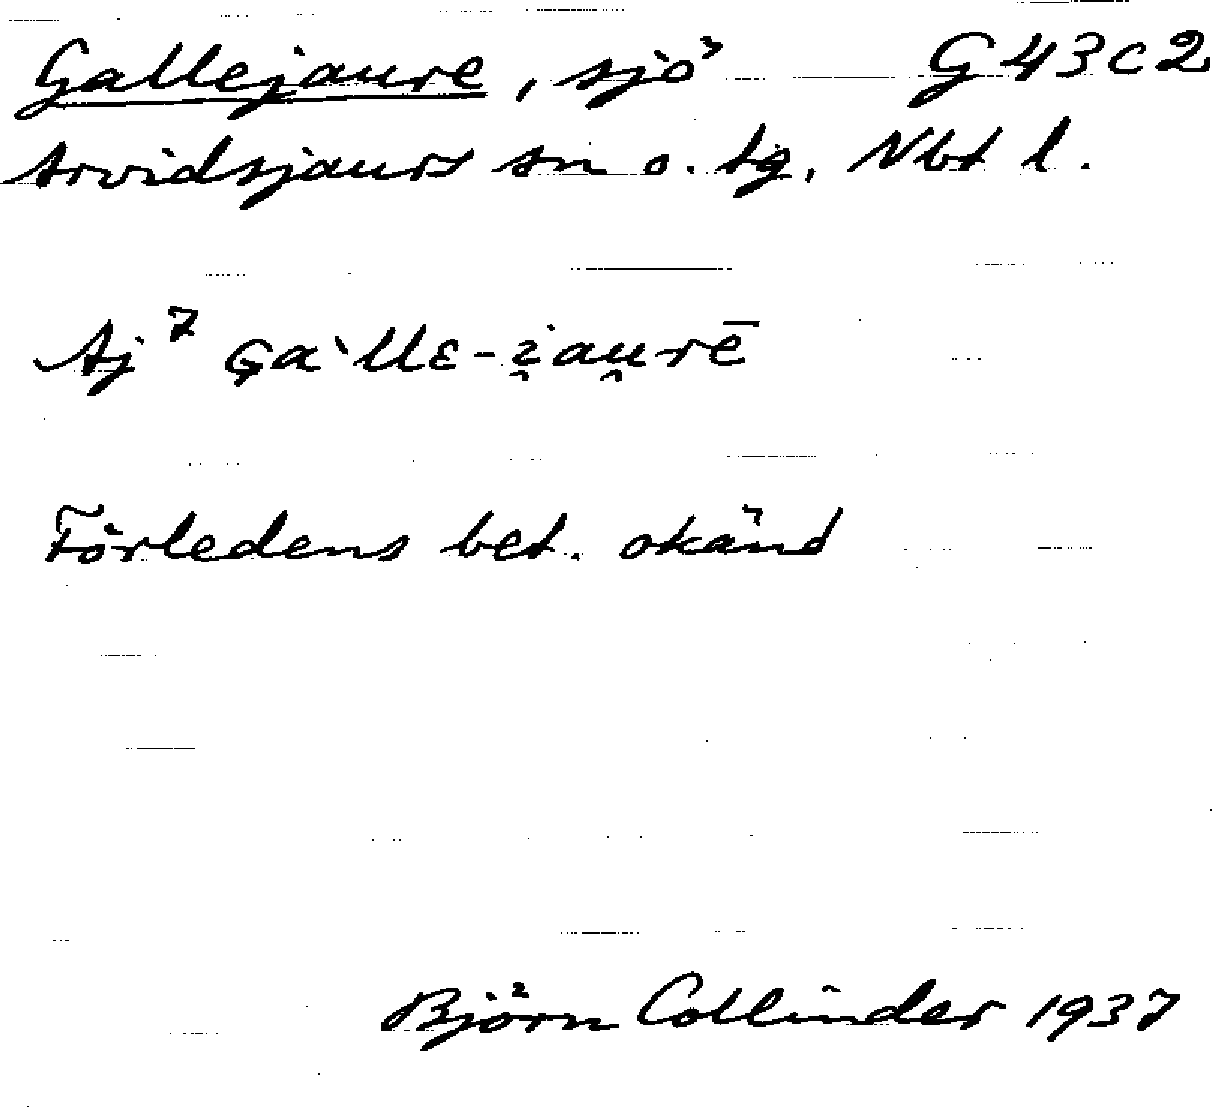 Gallejaure, sjö G43c2
Arvidsjaurs sn o. tg, Nbt l.
Aj⁷ G̣aˋllɛ-i̯au̯rē
Förledens bet. okänd
Björn Collinder 1937